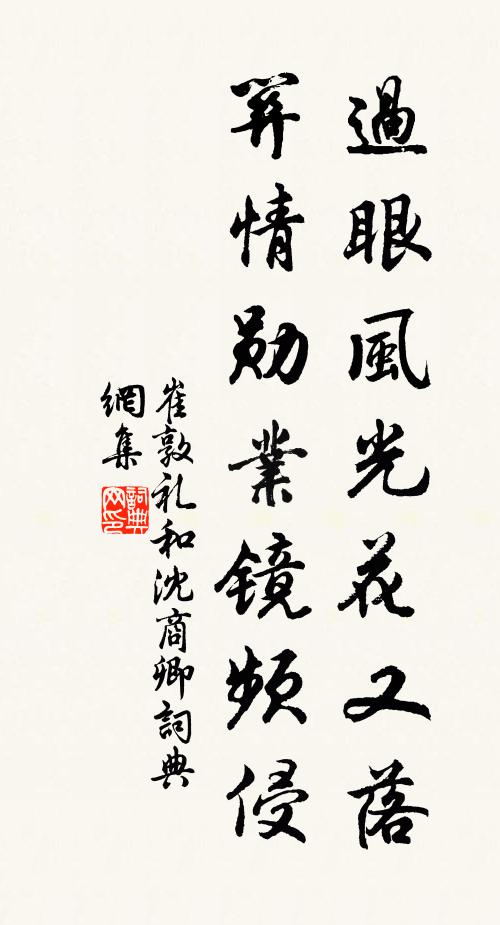 過眼風光花又落
关情勋業镜頻侵
崔敦礼和沈商卿詞典
網集
詞典
网印